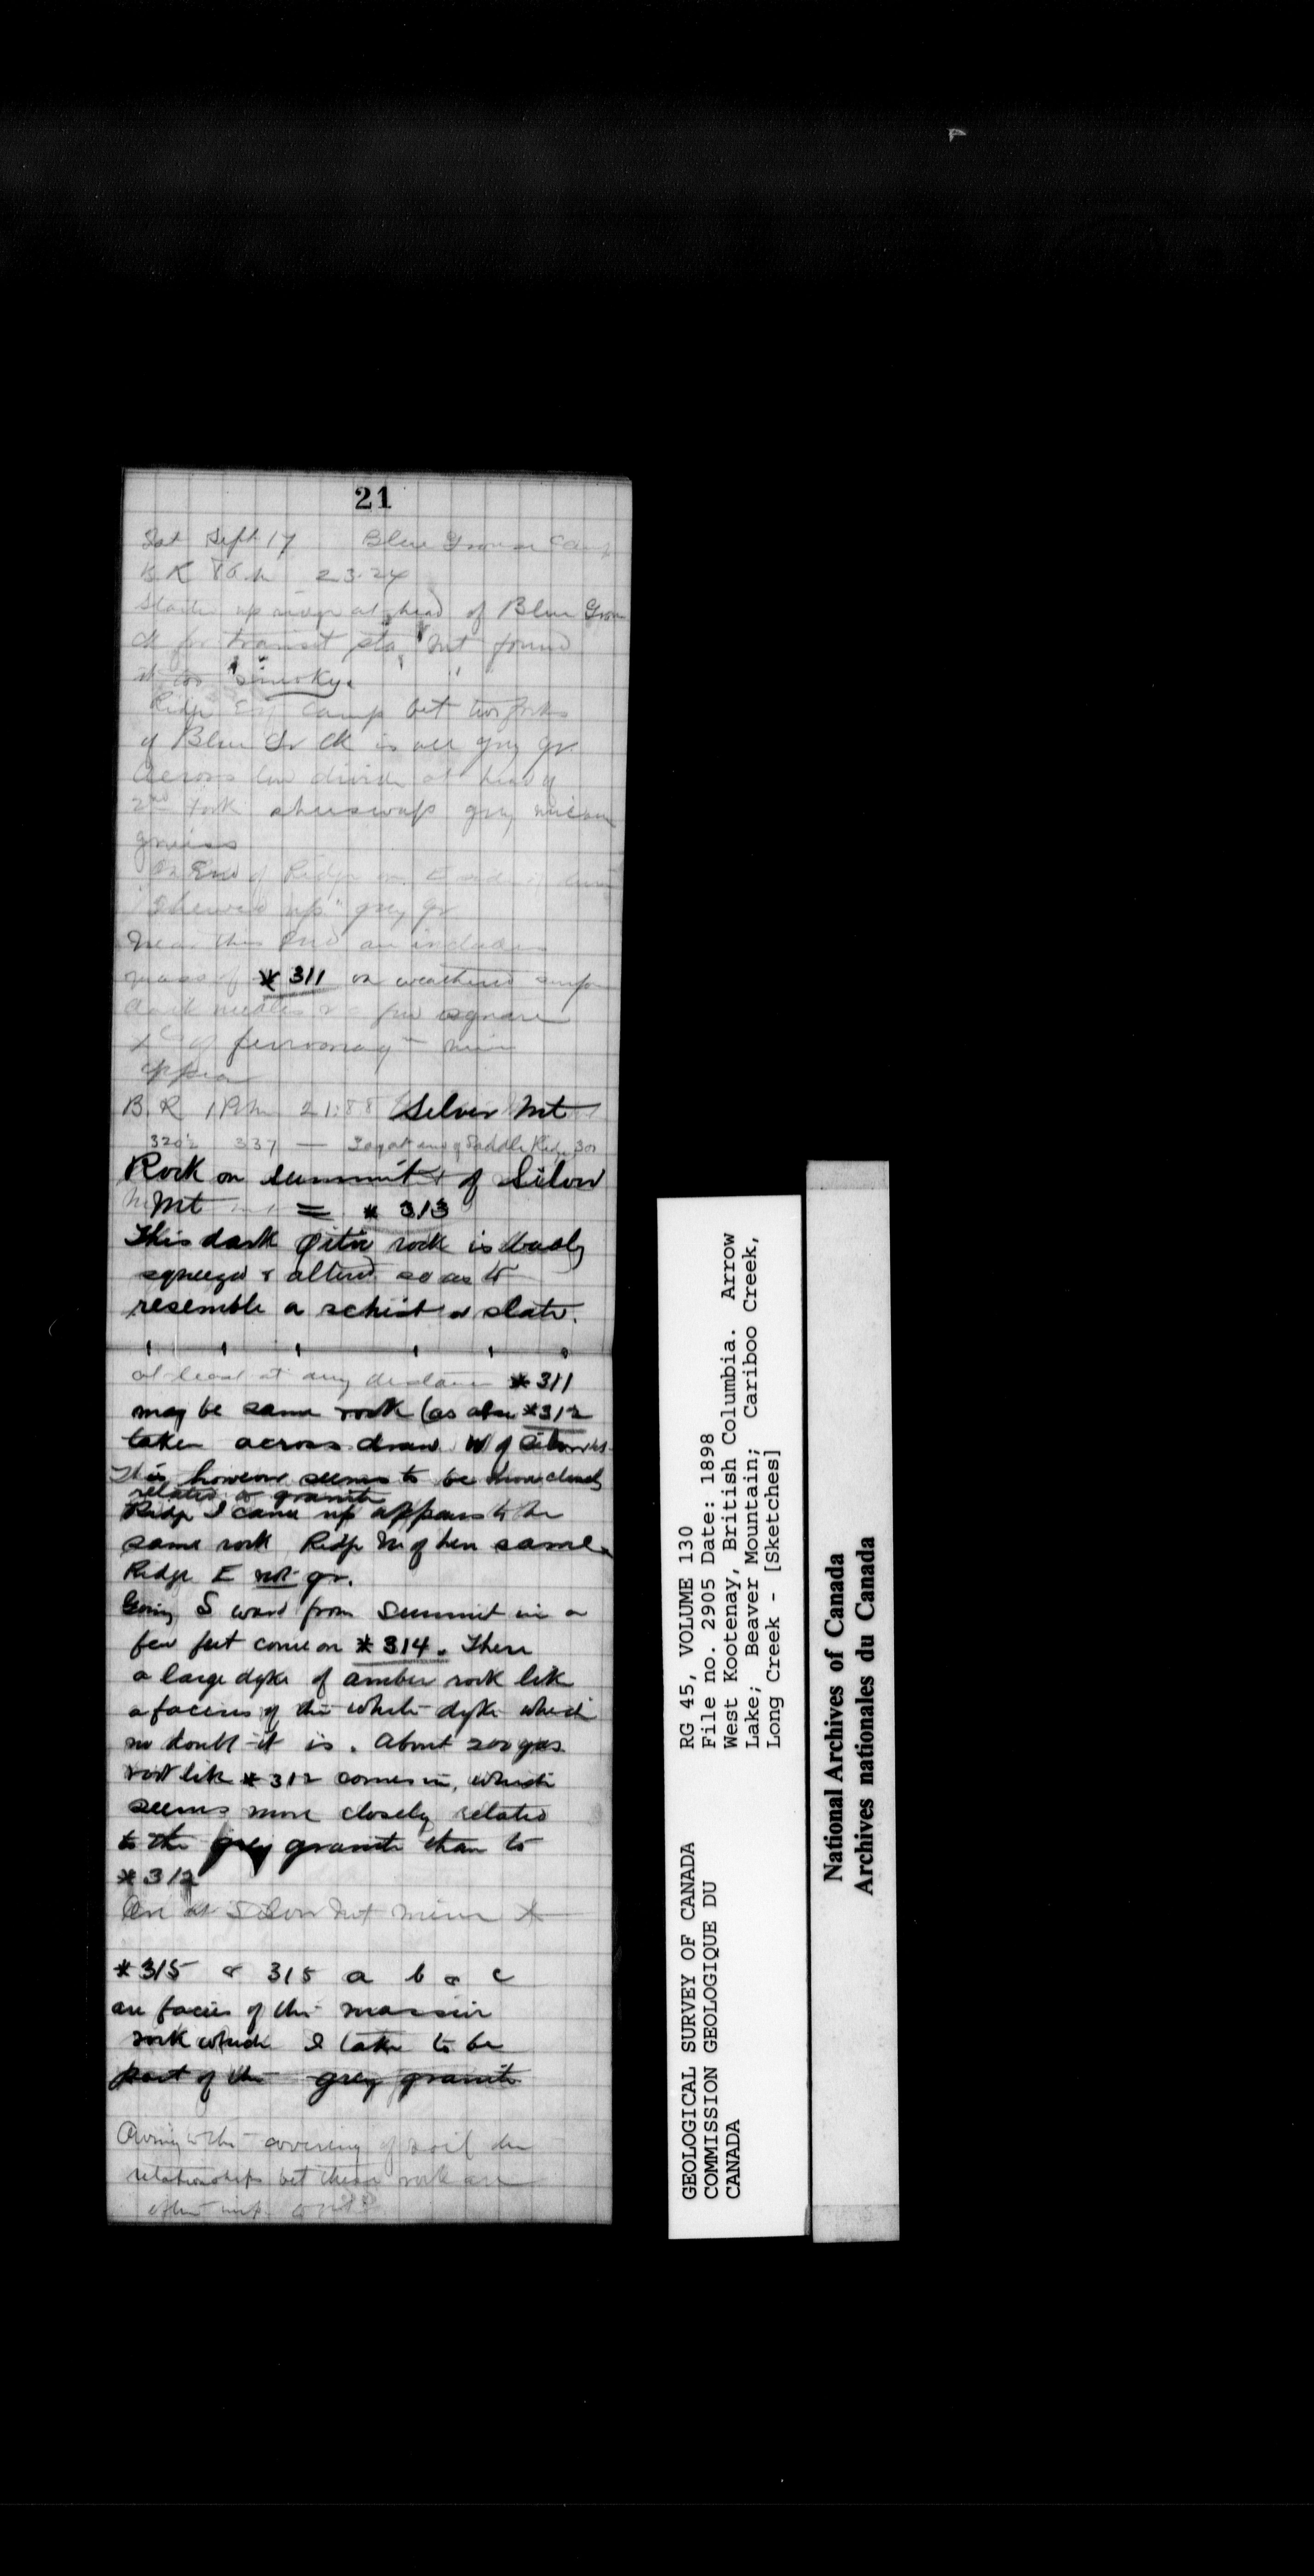 21
Sat Sept 17 Blue Grouse Camp
23.24
Started up ridge at head of Blue Grou
Ck for transit sta but found
it too smoky.
Ridge E of camp bet two forks
of Blue Gr Ck is all grey gr.
Across low divide at head of
2nd fork shuswap grey
gneiss
On End of Ridge on E side of
"Sheared up" grey gr
Near this End an included
mass of * 311 on weathered surface
dark needles & a few square
of ferromag n min
appear
B.R. 1 P.M 21.88 Silver Mt
337 — end of Saddle Ridge
Rock on summit of Silver
Mt = * 313
This dark rock is
squeezed & altered so as to
resemble a schist or slate.
at least at any distance * 311
may be same rock (as also * 312
taken across draw W of Silver Mt
This however seems to be more closely
related to granite
Ridge I came up appears to be
same rock Ridge N of here same
Ridge E not gr.
Going S ward from Summit in a
few feet come on * 314. There
a large dyke of amber rock like
a facies of the white dyke which
no doubt it is. About 200 yds
rock like * 312 comes in, which
seems more closely related
to the grey granite than to
* 312
Ore at Silver Mt mine
* 315 & 315 a b & c
are facies of the massive
rock which I take to be
part of the grey granite
Owing to the covering of soil the
relationships bet these rock are
often
RG 45, VOLUME 130
File no. 2905 Date: 1898
West Kootenay, British Columbia. Arrow
Lake; Beaver Mountain; Cariboo Creek,
Long Creek - [Sketches]
GEOLOGICAL SURVEY OF CANADA
COMMISSION GEOLOGIQUE DU
CANADA
National Archives of Canada
Archives nationales du Canada